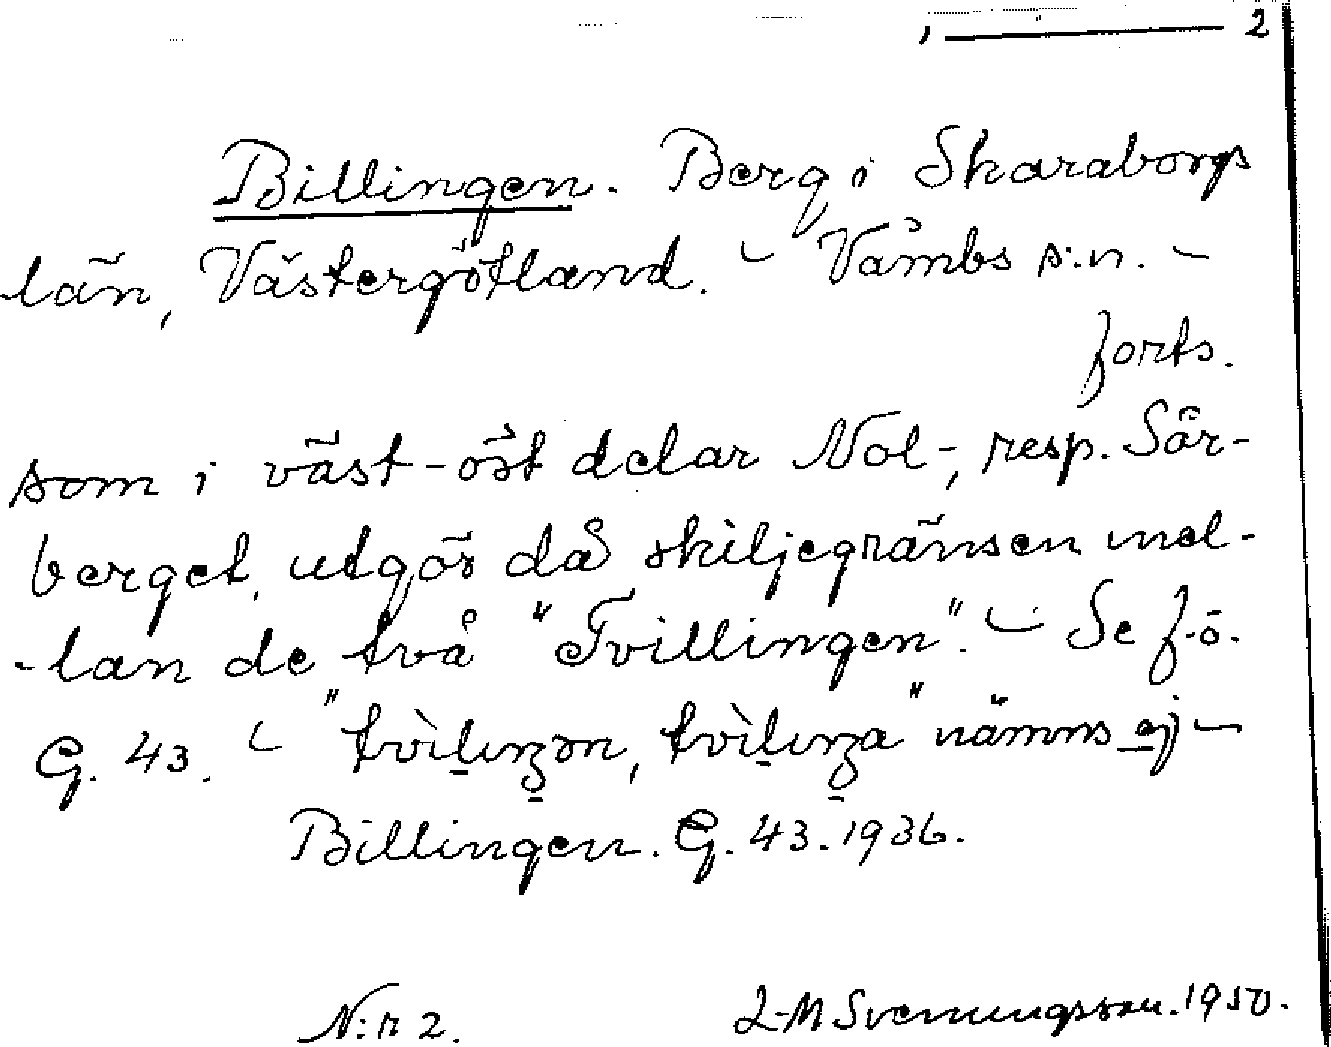 2
Billingen. Berg i Skaraborgs
län, Västergötland. - Våmbs s:n. -
forts.
som i väst-öst delar Nol-, resp. Sör-
berget, utgör då skiljegränsen mel-
-lan de två "Tvillingen". - Se f.ö.
G. 43. - " " nämns ej -
Billingen. G. 43. 1936.
N:r 2. L-M Svenungsson. 1950.